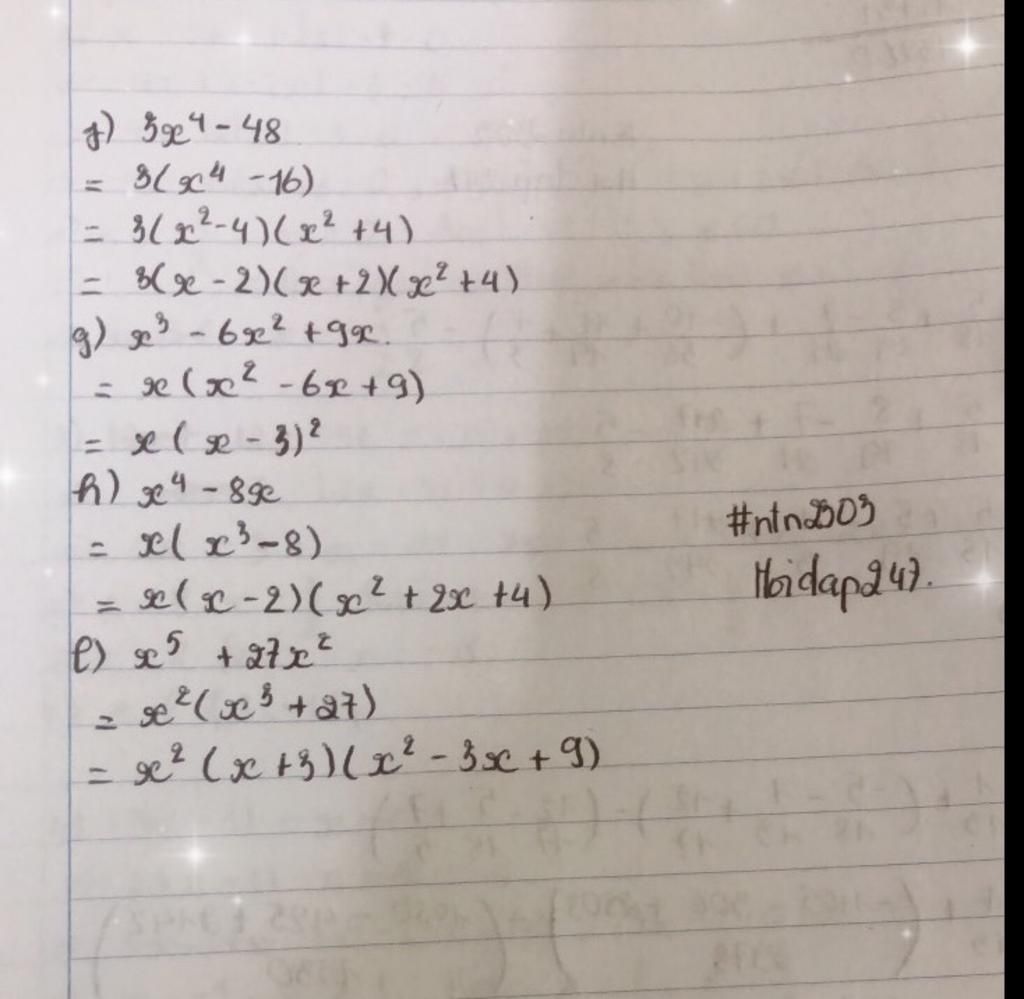 f) 3x⁴ - 48
= 3(x⁴ - 16)
= 3(x² - 4)(x² + 4)
= 3(x - 2)(x + 2)(x² + 4)
g) x³ - 6x² + 9x.
= x(x² - 6x + 9)
= x(x - 3)²
h) x⁴ - 8x
= x(x³ - 8)
= x(x - 2)(x² + 2x + 4)
#ntn2303
Hoidap247.
l) x⁵ + 27x²
= x²(x³ + 27)
= x²(x + 3)(x² - 3x + 9)